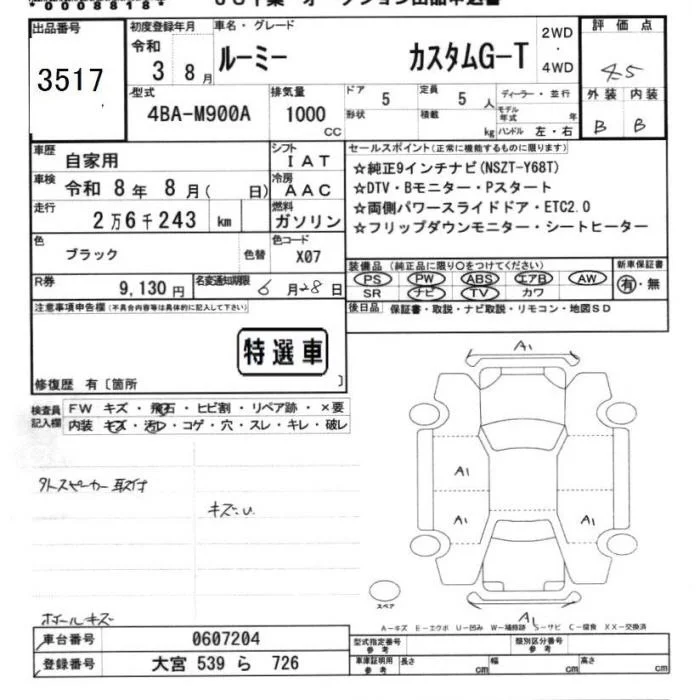 00088184
出品番号
3517
初度登録年月
令和
3 8月
車名・グレード
ルーミー カスタムG-T
2WD
・
4WD
評価点
4.5
外装 内装
B B
型式
4BA-M900A
排気量
1000
CC
ドア
5
形状
定員
5 人
積載
kg
ディーラー・並行
モデル
年式 年
ハンドル 左・右
車歴
自家用
シフト
IAT
車検
令和 8年 8月( 日)
冷房
AAC
走行
2万6千243 km
燃料
ガソリン
色
ブラック
色替
色コード
X07
R券
9,130円
名変通知期限
6月28日
セールスポイント(正常に機能するものに限ります)
☆純正9インチナビ(NSZT-Y68T)
☆DTV・Bモニター・Pスタート
☆両側パワースライドドア・ETC2.0
☆フリップダウンモニター・シートヒーター
装備品 (純正品に限り○をつけてください)
PS PW ABS エアB AW
SR ナビ TV カワ
新車保証書
有・無
後日品 保証書・取説・ナビ取説・リモコン・地図SD
注意事項申告欄(不具合内容等は具体的に記入して下さい)
特選車
修復歴 有〔箇所 〕
検査員
記入欄
FW キズ・飛石・ヒビ割・リペア跡・×要
内装 キズ・汚レ・コゲ・穴・スレ・キレ・破レ
外スピーカー取付
キズ.U.
ホイールキズ
A1
A1
A1
A1
A1
スペア
A-キズ E-エクボ U-凹み W-補修跡 S-サビ C-腐食 XX-交換済
車台番号
0607204
登録番号
大宮 539 ら 726
型式指定番号
参考
類別区分番号
参考
車庫証明用
参考
長さ cm
幅 cm
高さ cm